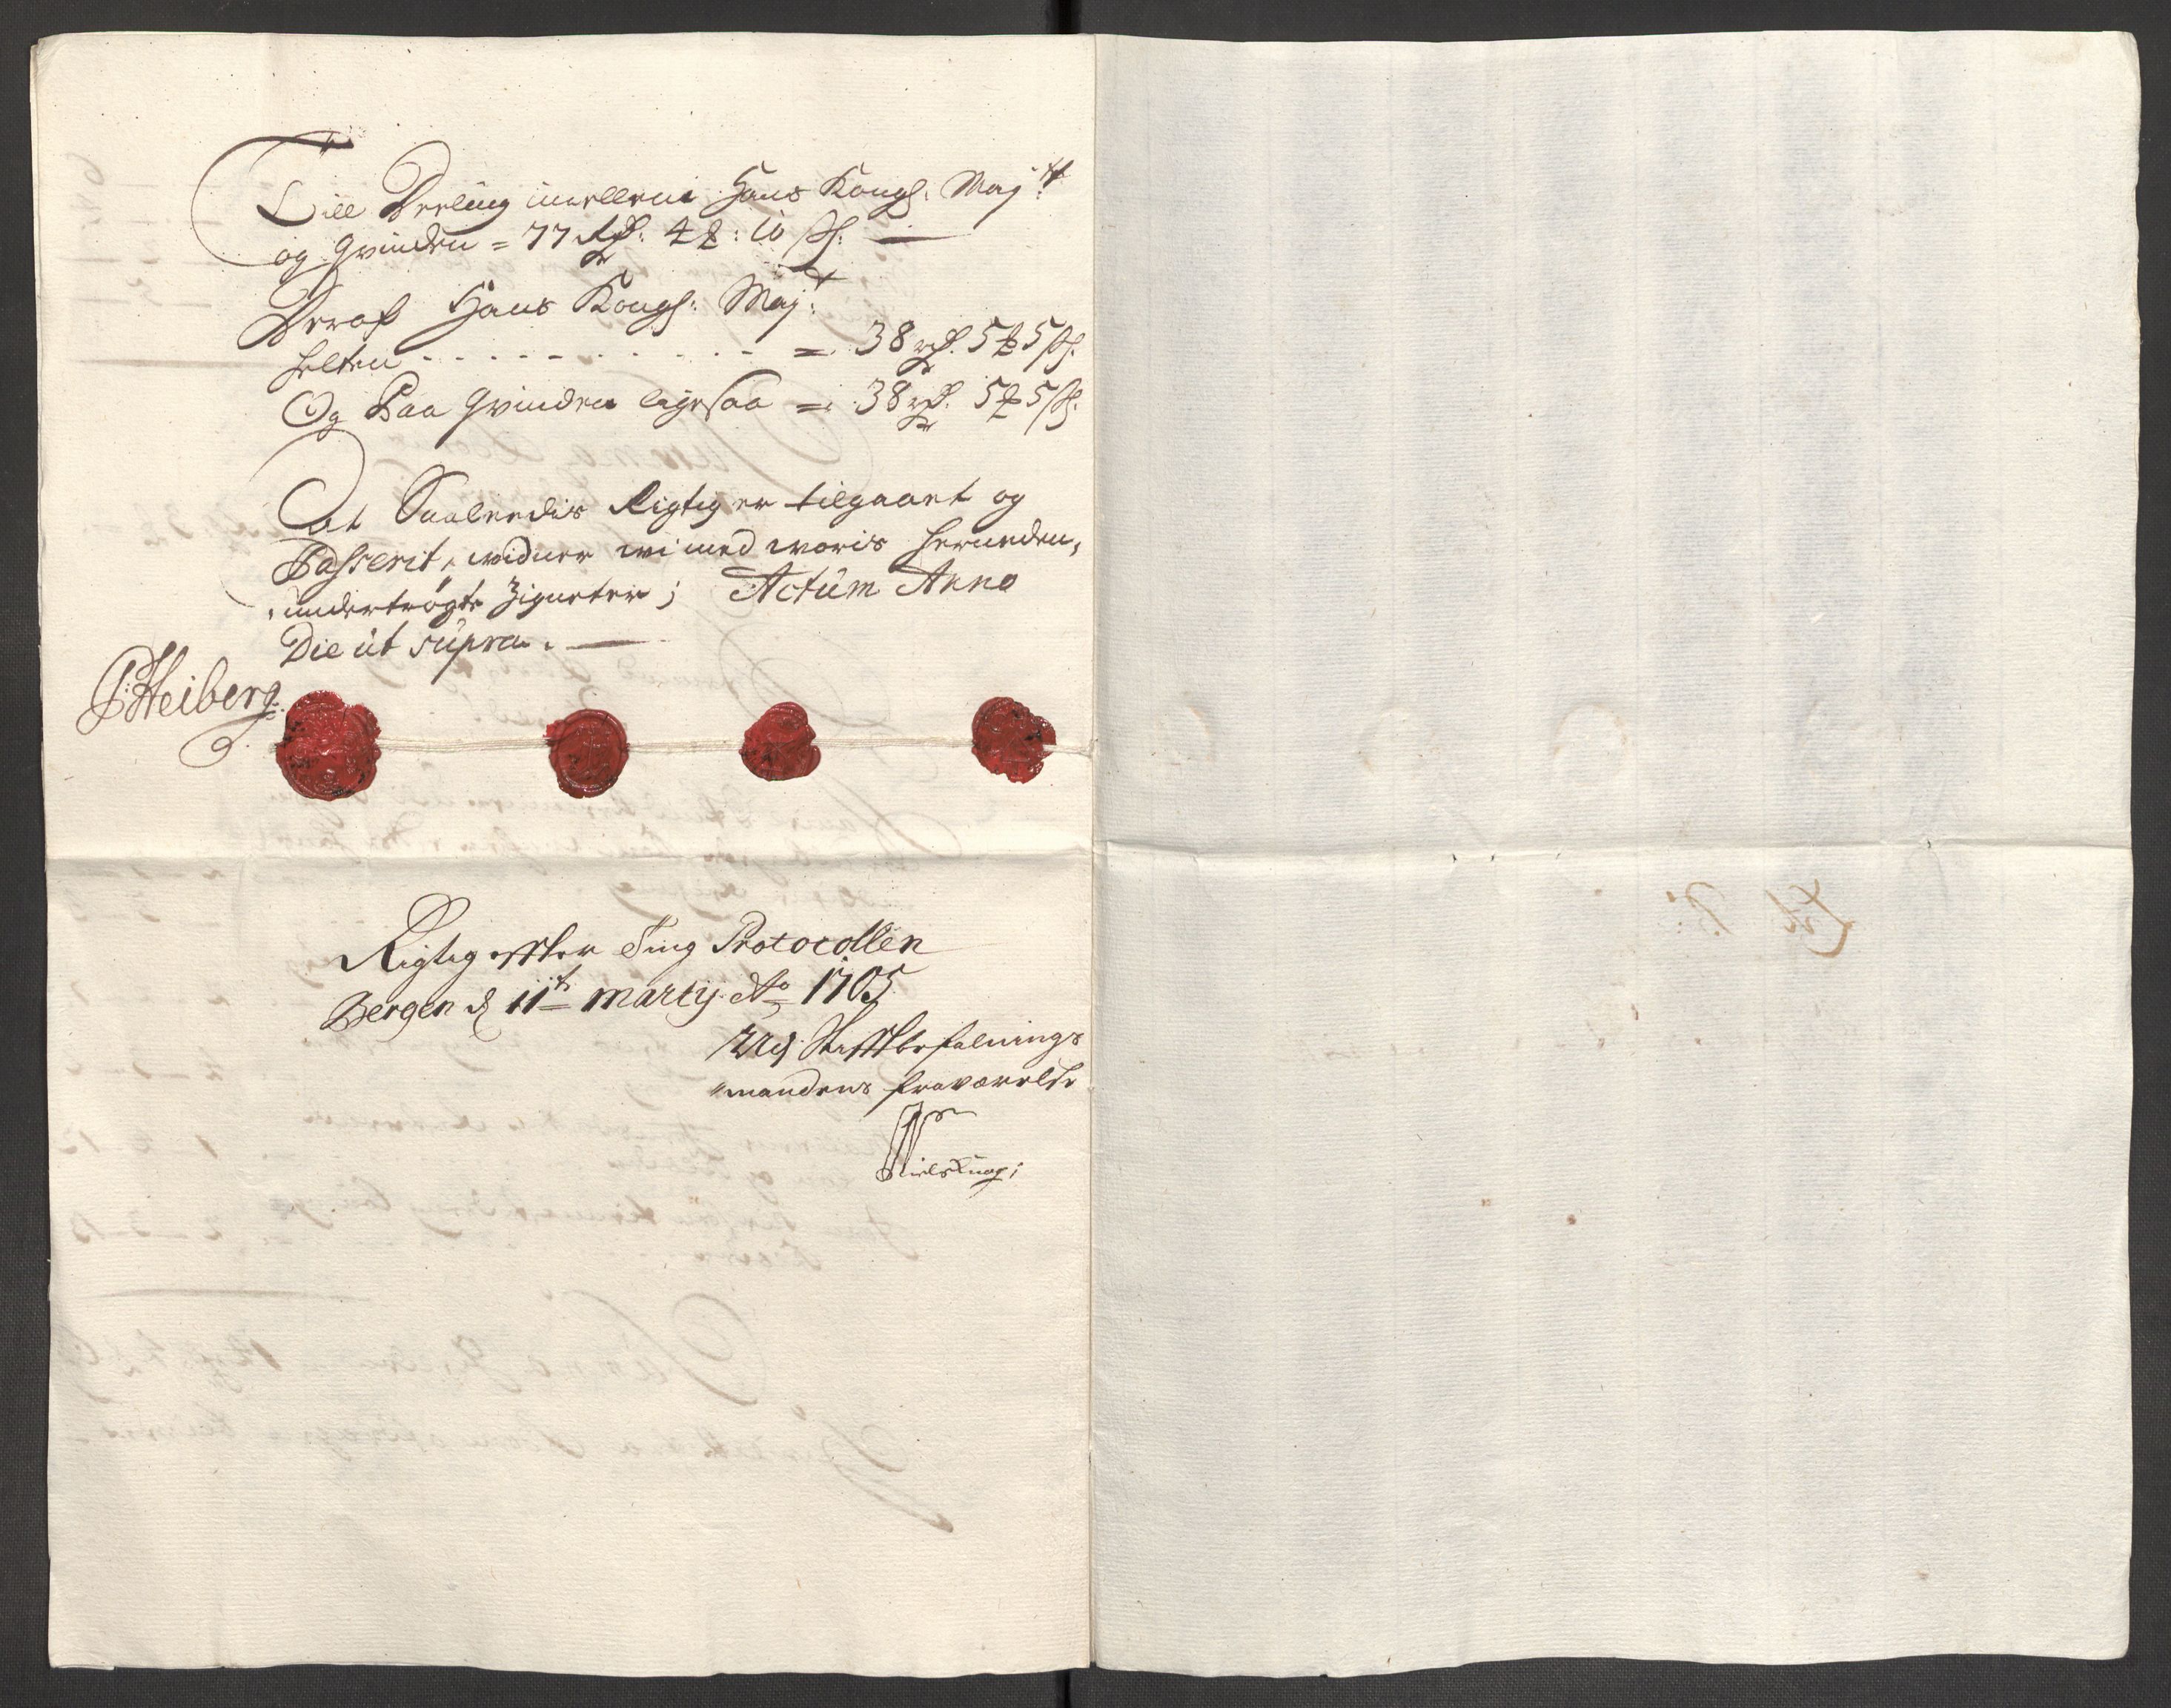 Till Deeling imellem Hans Kongl: Maj:tt
og Qvinden = 77 Rdr: 4 ₰: 10 ß:
Deraf Hans Kongl: Maj:t
helten - - - - - - - - - = 38 rdr. 5 ₰ 5 ß.
Og Paa Qvinden ligesaa = 38 rdr. 5 ₰ 5 ß.
At Saaleedis Rigtig er tilgaaet og
Passerit, widner wi med woris herneden,
undertrögte Zigneter; Actum Anno
Die ut supra.
P: Heiberg
Rigtig effter Ting Protocollen
Bergen d 11t Martij Ao 1705
Udj Stifftbefalnings
mandens fraværelse
Niels Knag;